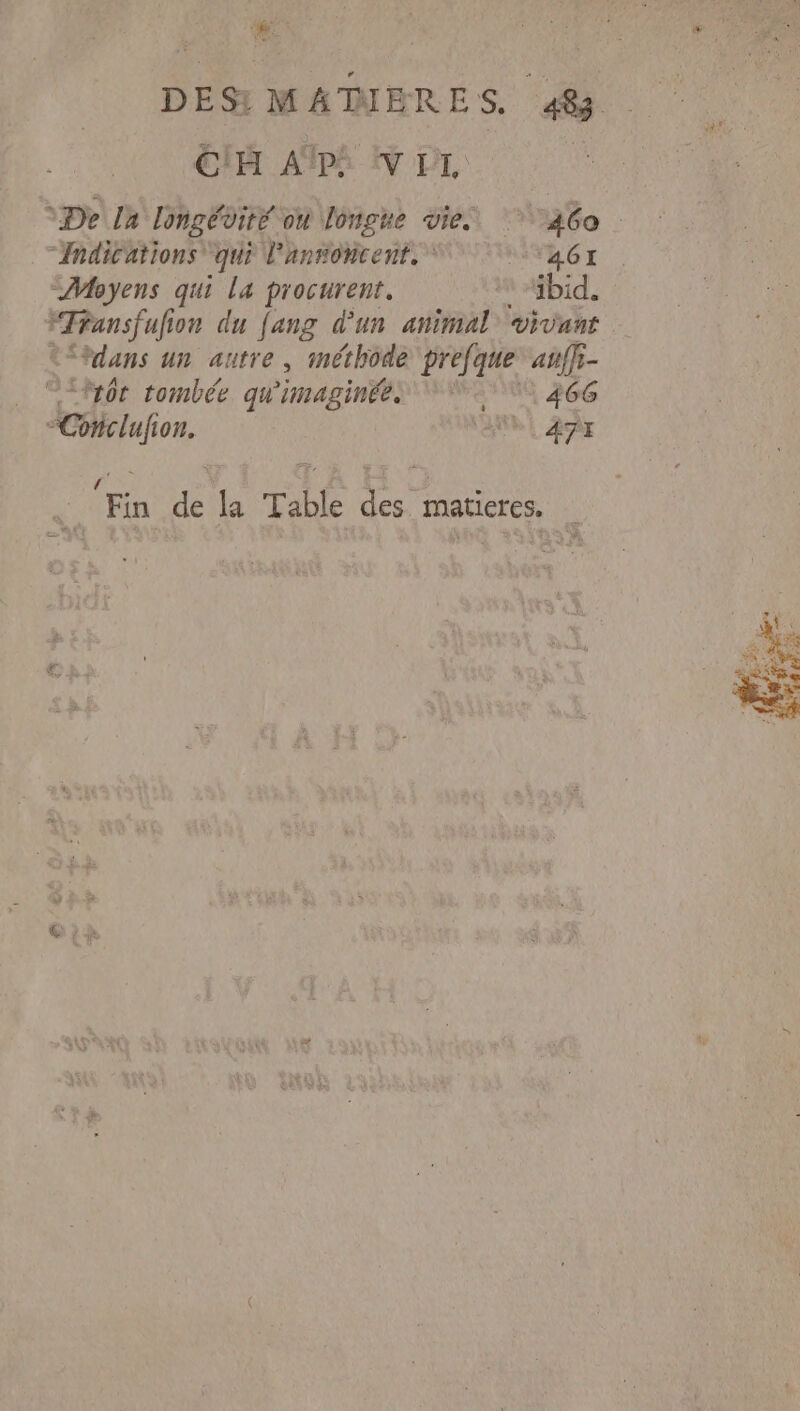 DES MATIERES. 483
CHAP. VII.
De la longévité ou longue vie. 460
Indications qui l'annoncent. 461
Moyens qui la procurent. ibid.
Transfuſion du ſang d'un animal vivant
dans un autre, méthode preſque auſſi-
tôt tombée qu'imaginée. 466
Concluſion. 471
Fin de la Table des matieres.